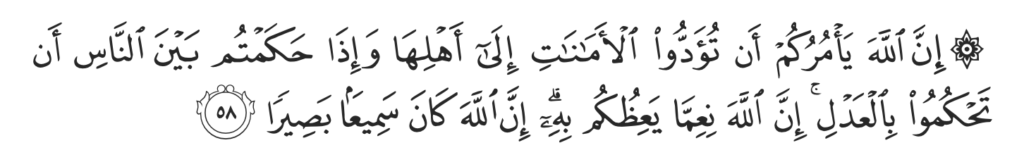 ۞ إِنَّ ٱللَّهَ يَأۡمُرُكُمۡ أَن تُؤَدُّواْ ٱلۡأَمَٰنَٰتِ إِلَىٰٓ أَهۡلِهَا وَإِذَا حَكَمۡتُم بَيۡنَ ٱلنَّاسِ أَن
تَحۡكُمُواْ بِٱلۡعَدۡلِۚ إِنَّ ٱللَّهَ نِعِمَّا يَعِظُكُم بِهِۦٓۗ إِنَّ ٱللَّهَ كَانَ سَمِيعَۢا بَصِيرٗا ٥٨